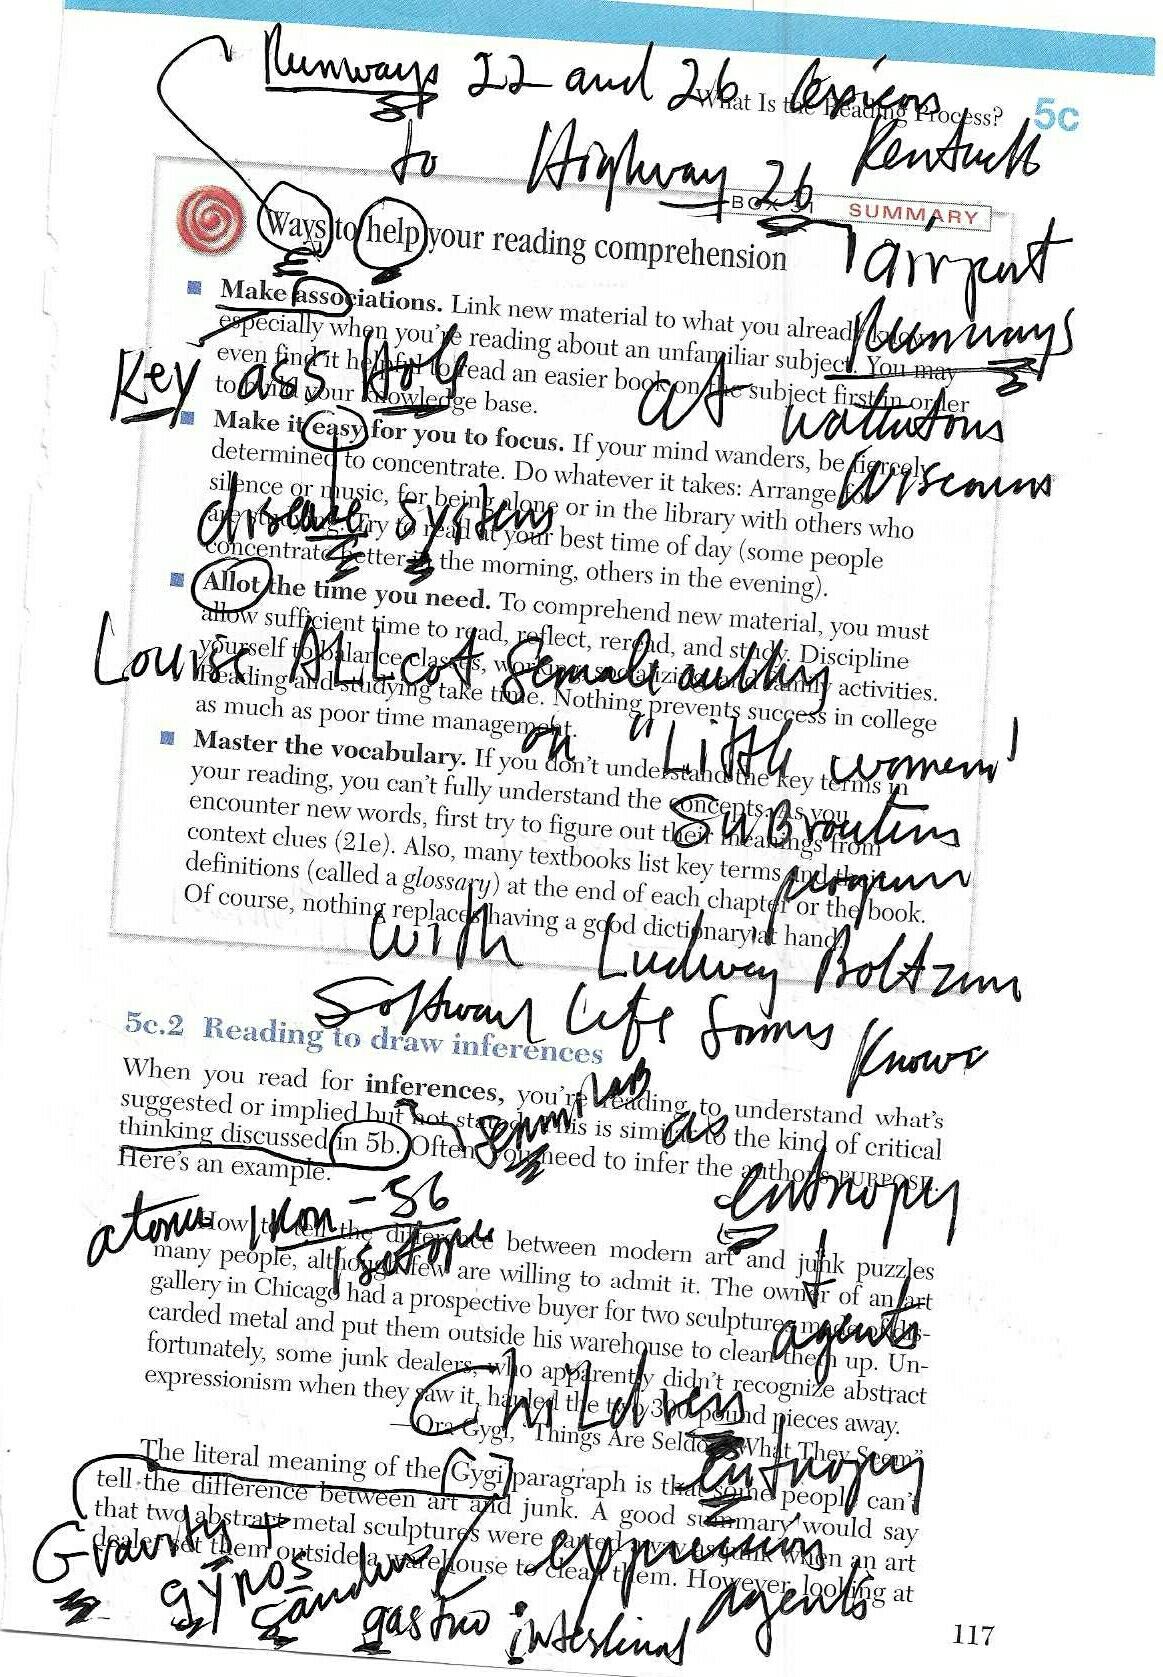 Runways 22 and 26
What Is the Reading Process? 5c
to Highway 26
BOX 31 SUMMARY
Ways to help your reading comprehension
airport
Make associations. Link new material to what you already know,
Runways
especially when you're reading about an unfamiliar subject. You may
Key ass Hole
even find it helpful to read an easier book on the subject first in order
at
to build your knowledge base.
Make it easy for you to focus. If your mind wanders, be fiercely
determined to concentrate. Do whatever it takes: Arrange for
silence or music, for being alone or in the library with others who
disease systems
are studying. Try to read at your best time of day (some people
concentrate better in the morning, others in the evening).
Allot the time you need. To comprehend new material, you must
allow sufficient time to read, reflect, reread, and study. Discipline
Louise ALLcot
yourself to balance classes, working, socializing, and family activities.
Reading and studying take time. Nothing prevents success in college
as much as poor time management.
on "Little women"
Master the vocabulary. If you don't understand the key terms in
your reading, you can't fully understand the concepts. As you
encounter new words, first try to figure out their meanings from
context clues (21e). Also, many textbooks list key terms and their
program
definitions (called a glossary) at the end of each chapter or the book.
Of course, nothing replaces having a good dictionary at hand.
with
Software Life forms
5c.2 Reading to draw inferences
When you read for inferences, you're reading to understand what's
suggested or implied but not stated. This is similar to the kind of critical
as
thinking discussed in 5b. Often, you need to infer the author's PURPOSE.
Here's an example.
entropy
Iron-56
How to tell the difference between modern art and junk puzzles
isotope
many people, although few are willing to admit it. The owner of an art
gallery in Chicago had a prospective buyer for two sculptures made of dis-
agents
carded metal and put them outside his warehouse to clean them up. Un-
fortunately, some junk dealers, who apparently didn't recognize abstract
Childrens
expressionism when they saw it, hauled the two 300-pound pieces away.
—Ora Gygi, "Things Are Seldom What They Seem"
entropy
The literal meaning of the Gygi paragraph is that some people can't
tell the difference between art and junk. A good summary would say
that two abstract metal sculptures were carted away as junk when an art
Gravity +
expressions
dealer set them outside a warehouse to clean them. However, looking at
gyros
agents
gastro intestinal
117